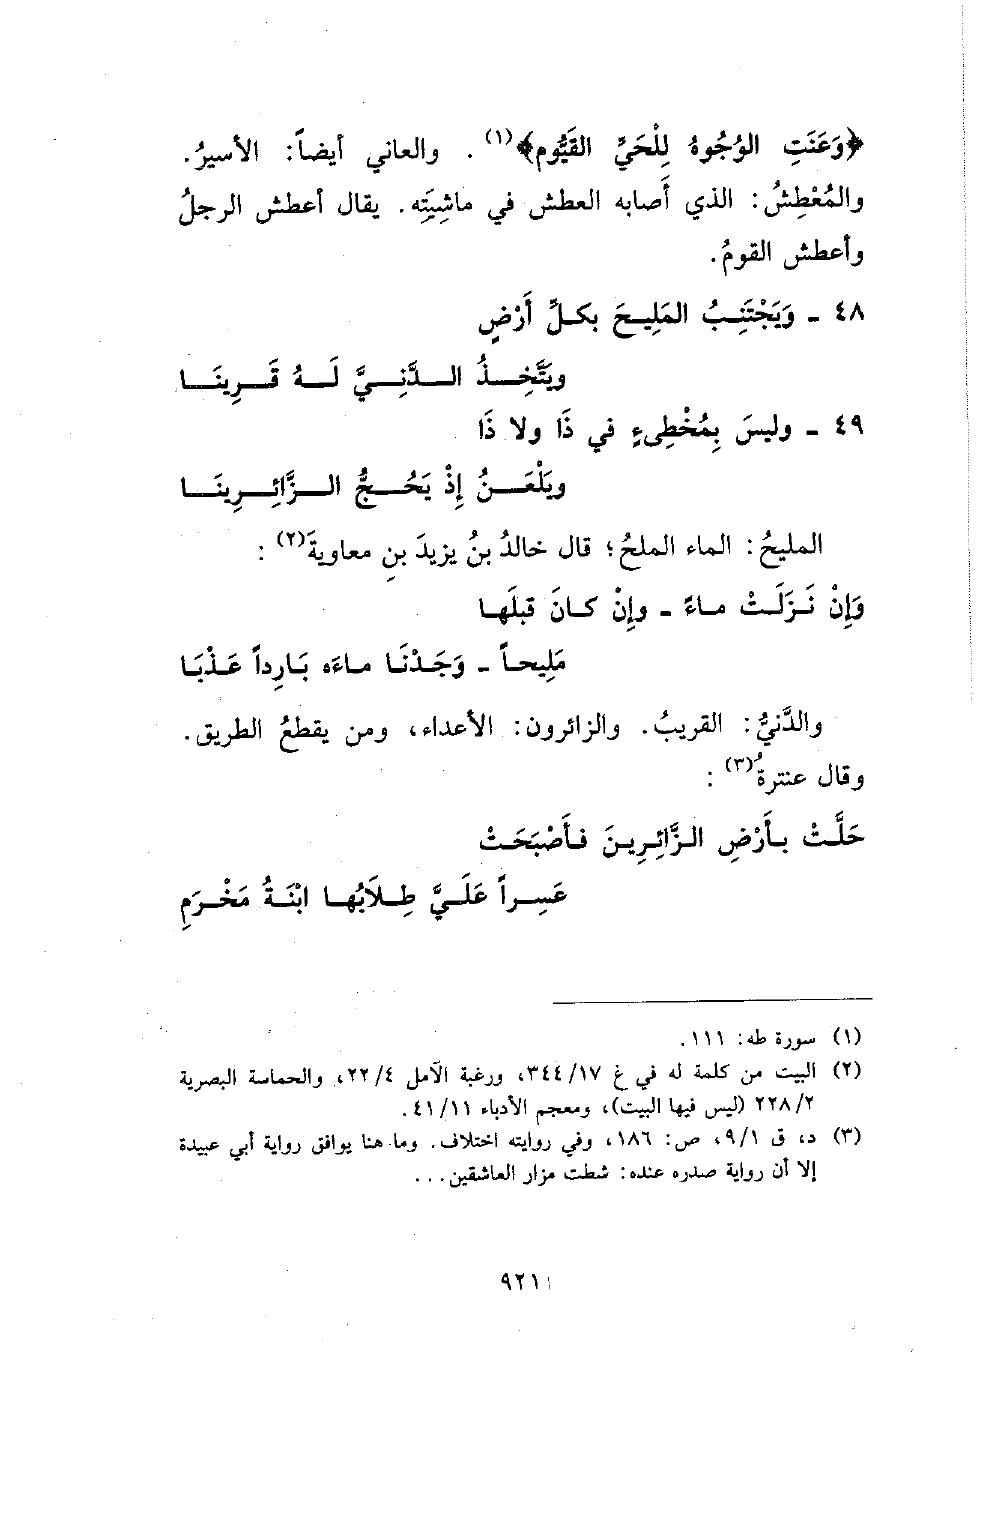 ﴿وَعَنَتِ الوُجُوهُ لِلْحَيِّ القَيُّوم﴾(١) . والعاني أيضاً: الأسيرُ.
والمُعْطِشُ: الذي أَصابه العطش في ماشِيَتِه. يقال أعطش الرجلُ
وأعطش القومُ.
٤٨ ـ وَيَجْتَنِبُ المَلِيحَ بكلِّ أَرْضٍ
ويَتَّخِذُ الدَّنِيَّ لَهُ قَرِينَا
٤٩ ـ وليسَ بِمُخْطِىءٍ في ذَا ولا ذَا
ويَلْعَنُ إِذْ يَحُجُّ الزَّائِرِينَا
المليحُ: الماء الملحُ؛ قال خالدُ بنُ يزيدَ بنِ معاويةَ(٢) :
وَإِنْ نَزَلَتْ ماءً ـ وإِنْ كانَ قبلَها
مَلِيحاً ـ وَجَدْنَا ماءَه بَارِداً عَذْبَا
والدَّنيُّ: القريبُ. والزائرون: الأعداء، ومن يقطعُ الطريق.
وقال عنترةُ(٣) :
حَلَّتْ بأَرْضِ الزَّائِرِينَ فأَصْبَحَتْ
عَسِراً عَلَيَّ طِلَابُها ابْنَةُ مَخْرَمِ
(١) سورة طه: ١١١.
(٢) البيت من كلمة له في غ ٣٤٤/١٧، ورغبة الآمل ٢٢/٤، والحماسة البصرية
٢٢٨/٢ (ليس فيها البيت)، ومعجم الأدباء ٤١/١١.
(٣) د، ق ٩/١، ص: ١٨٦، وفي روايته اختلاف. وما هنا يوافق رواية أبي عبيدة
إلا أن رواية صدره عنده: شطت مزار العاشقين...
٩٢١